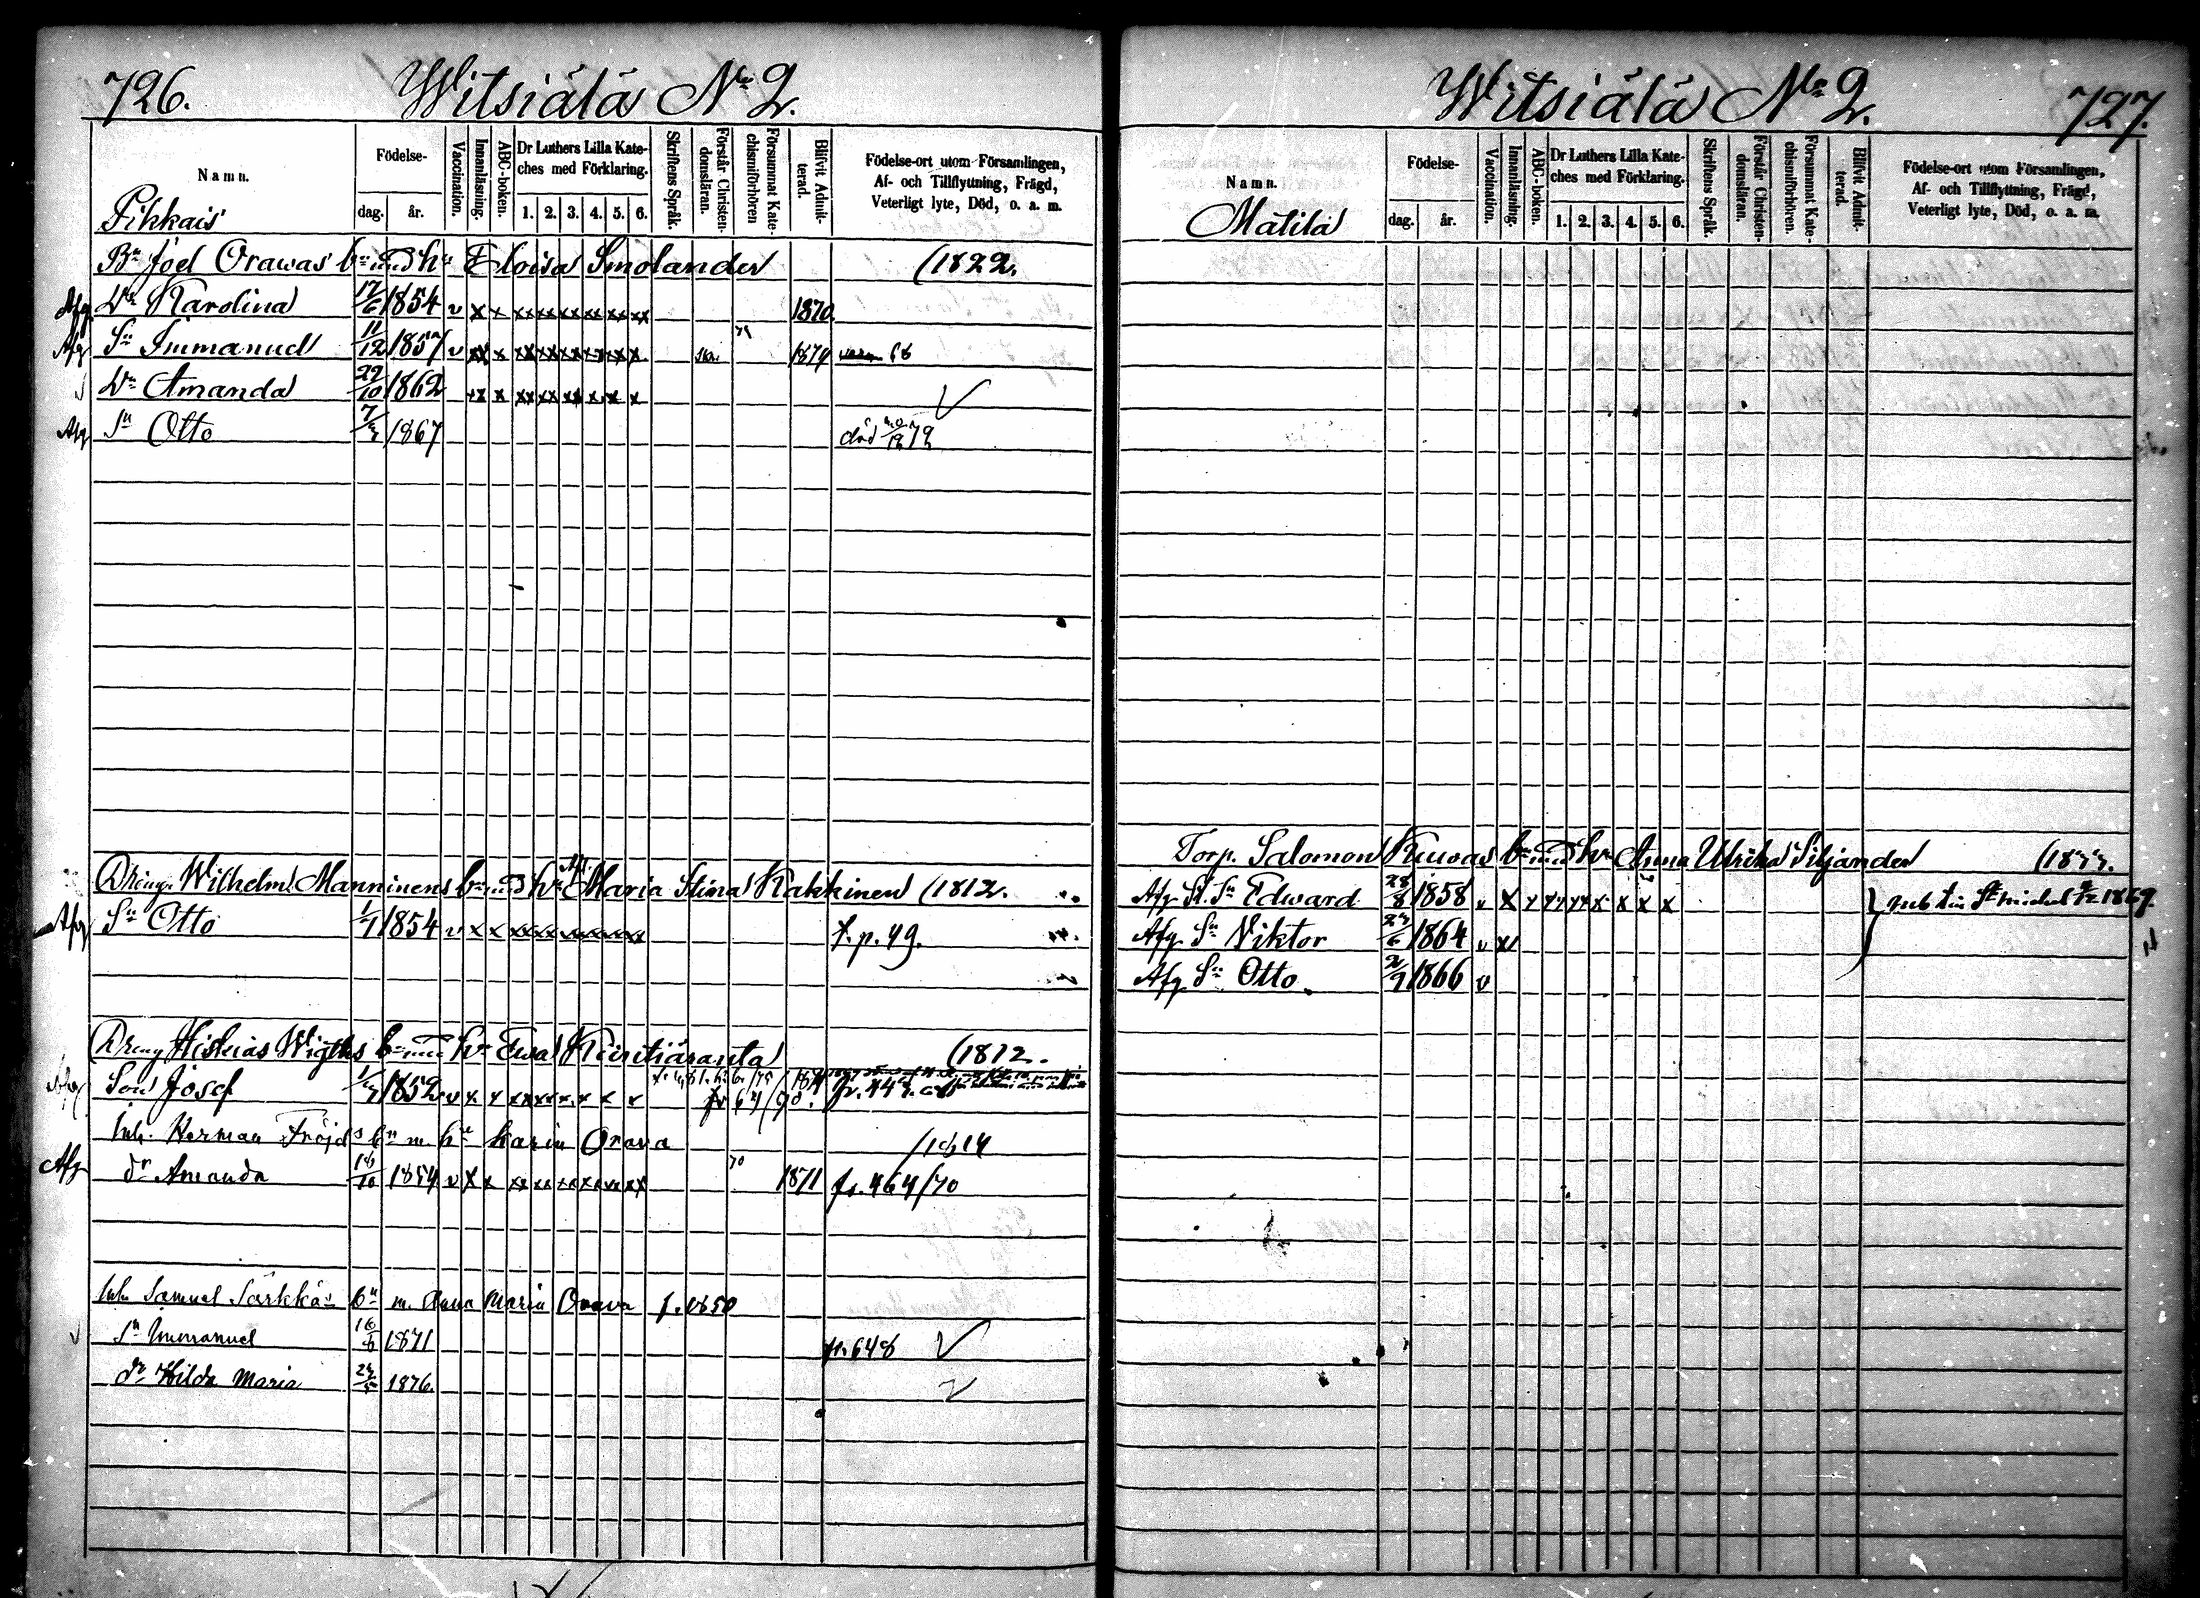 726. Witsiälä No 2.
Namn.
Födelse-
dag. år.
Vaccination.
Innanläsning.
ABC-boken.
Dr Luthers Lilla Kate-
ches med Förklaring.
1. 2. 3. 4. 5. 6.
Skriftens Språk.
Förstår Christen-
domsläran.
Försummat Kate-
chismiförhören
Blifvit Admit-
terad.
Födelse-ort utom Församlingen,
Af- och Tillflyttning, Frägd,
Veterligt lyte, Död, o. a. m.
Pikkais
Bn Joel Orawas bn med hu Eloisa Smolander (1822.
Afg. Dr Karolina 17/6 1854 v x x xx xx xx xx xx xx 1870.
Afg Sn Immanuel 11/12 1857 v xx x xx xx xx xx x 1874
Dr Amanda 29/10 1862 xx x xx xx xx x x x
Afg Sn Otto 7/7 1867 död
Dräng Wilhelm Manninens bn med hu Maria Stina Kakkinen (1812.
Afg Sn Otto 1/1 1854 v x x xx xx xx xx xx xx f. p. 49.
Dreng Hiskias Wigths bn med hu Ewa (1812.
Afg Son Josef 1/7 1852 v x x xx xx x x x x
Inh. Herman Fröjds bn m. hu Karin Orava
Afg dr Amanda 18/10 1854 v x x xx xx xx xx xx xx 1871 fr. 464/70
Inh Samuel Särkkäs bn m. Anna Maria Orava f. 1850
sn Immanuel 16/8 1871 fr. 648
dr Hilda Maria 1876.
Witsiälä No 2. 727.
Namn.
Födelse-
dag. år.
Vaccination.
Innanläsning.
ABC-boken.
Dr Luthers Lilla Kate-
ches med Förklaring.
1. 2. 3. 4. 5. 6.
Skriftens Språk.
Förstår Christen-
domsläran.
Försummat Kate-
chismiförhören.
Blifvit Admit-
terad.
Födelse-ort utom Församlingen,
Af- och Tillflyttning, Frägd,
Veterligt lyte, Död, o. a. m.
Matila
Torp. Salomon Kuwas bn med hu Anna Ulrika Siljander
Afg Sn Edward 28/8 1858 v x x xx xx x x x x St michel 1869.
Afg Sn Viktor 1864 v x
Afg Sn Otto. 1866 v